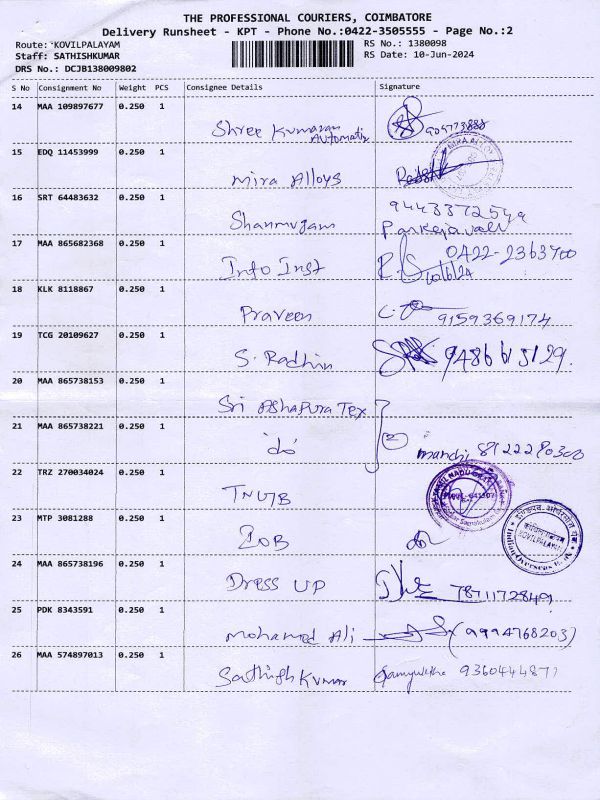 THE PROFESSIONAL COURIERS, COIMBATORE
Delivery Runsheet - KPT - Phone No.:0422-3505555 - Page No.:2
Route: KOVILPALAYAM
RS No.: 1380098
Staff: SATHISHKUMAR
RS Date: 10-Jun-2024
DRS No.: DCJB138009802
S No Consignment No Weight PCS Consignee Details Signature
14 MAA 109897677 0.250 1
Shree Kumaran
Automatix
15 EDQ 11453999 0.250 1
Mira Alloys
16 SRT 64483632 0.250 1
Shanmugam
17 MAA 865682368 0.250 1
Info Inst 0422-2363700
18 KLK 8118867 0.250 1
Praveen 9159369174
19 TCG 20109627 0.250 1
S. Radhin
20 MAA 865738153 0.250 1
Sri Ashapura Tex
21 MAA 865738221 0.250 1
do
22 TRZ 270034024 0.250 1
TNUJB
23 MTP 3081288 0.250 1
IOB
KOVILPALAYAM
Indian Overseas Bank
24 MAA 865738196 0.250 1
Dress UP 7871172849
25 PDK 8343591 0.250 1
Mohamed Ali (9994768203)
26 MAA 574897013 0.250 1
Sathish Kumar